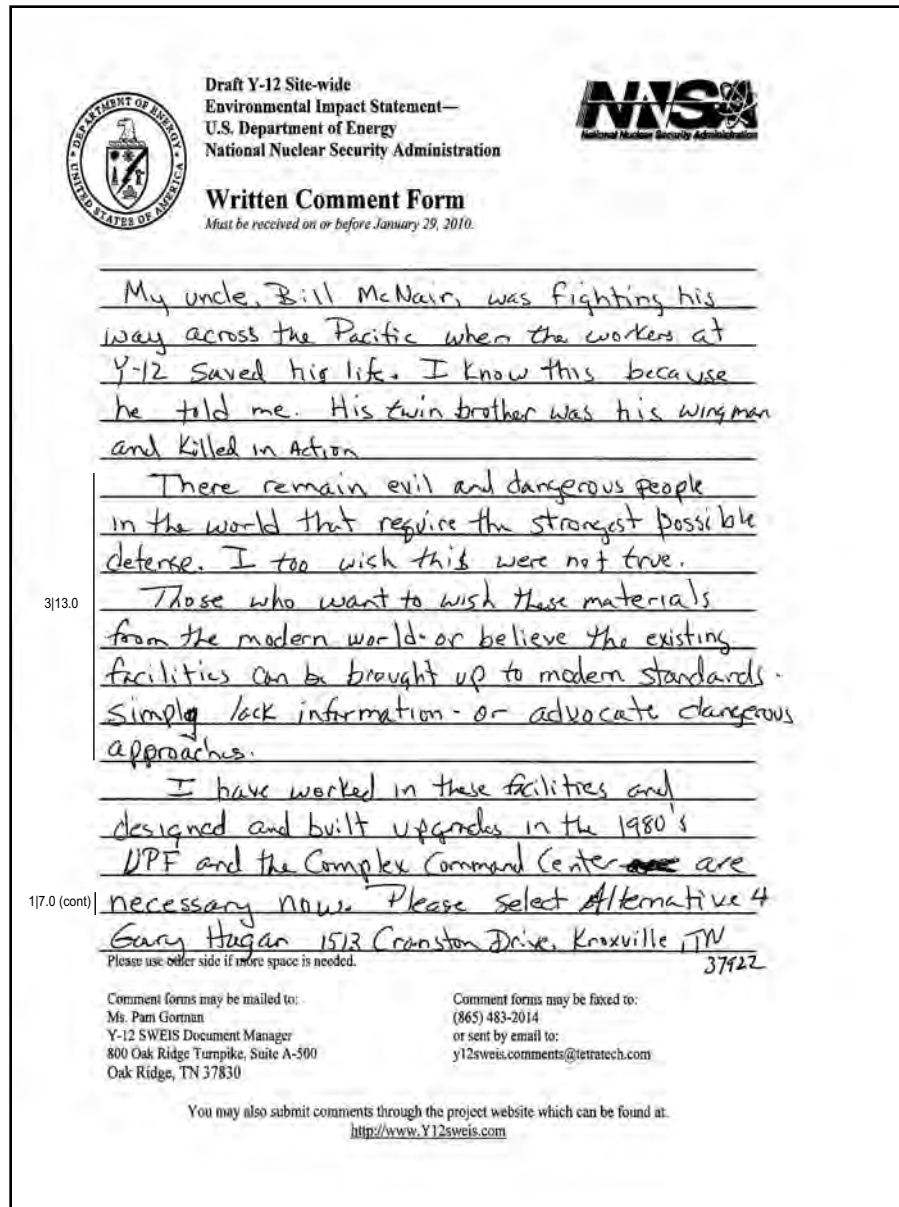 Draft Y-12 Site-wide
Environmental Impact Statement—
U.S. Department of Energy
National Nuclear Security Administration
DEPARTMENT OF ENERGY
UNITED STATES OF AMERICA
NNSA
National Nuclear Security Administration
Written Comment Form
Must be received on or before January 29, 2010.
My uncle, Bill McNair, was fighting his
way across the Pacific when the workers at
Y-12 saved his life. I know this because
he told me. His twin brother was his wingman
and Killed in Action
There remain evil and dangerous people
in the world that require the strongest possible
defense. I too wish this were not true.
3|13.0
Those who want to wish these materials
from the modern world - or believe the existing
facilities can be brought up to modern standards -
simply lack information - or advocate dangerous
approaches.
I have worked in these facilities and
designed and built upgrades in the 1980's
UPF and the Complex Command Center are
1|7.0 (cont)
necessary now. Please select Alternative 4
Gary Hagan 1513 Cranston Drive, Knoxville, TN
37922
Please use other side if more space is needed.
Comment forms may be mailed to:
Ms. Pam Gorman
Y-12 SWEIS Document Manager
800 Oak Ridge Turnpike, Suite A-500
Oak Ridge, TN 37830
Comment forms may be faxed to:
(865) 483-2014
or sent by email to:
y12sweis.comments@tetratech.com
You may also submit comments through the project website which can be found at:
http://www.Y12sweis.com